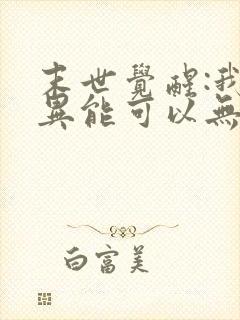 末世覺醒:我
異能可以無
白富美